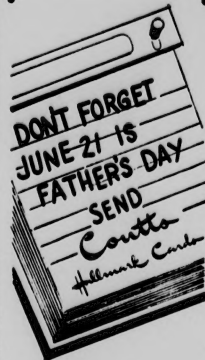 DON'T FORGET
JUNE 21 IS
FATHER'S DAY
SEND
Coutts
Hallmark Cards